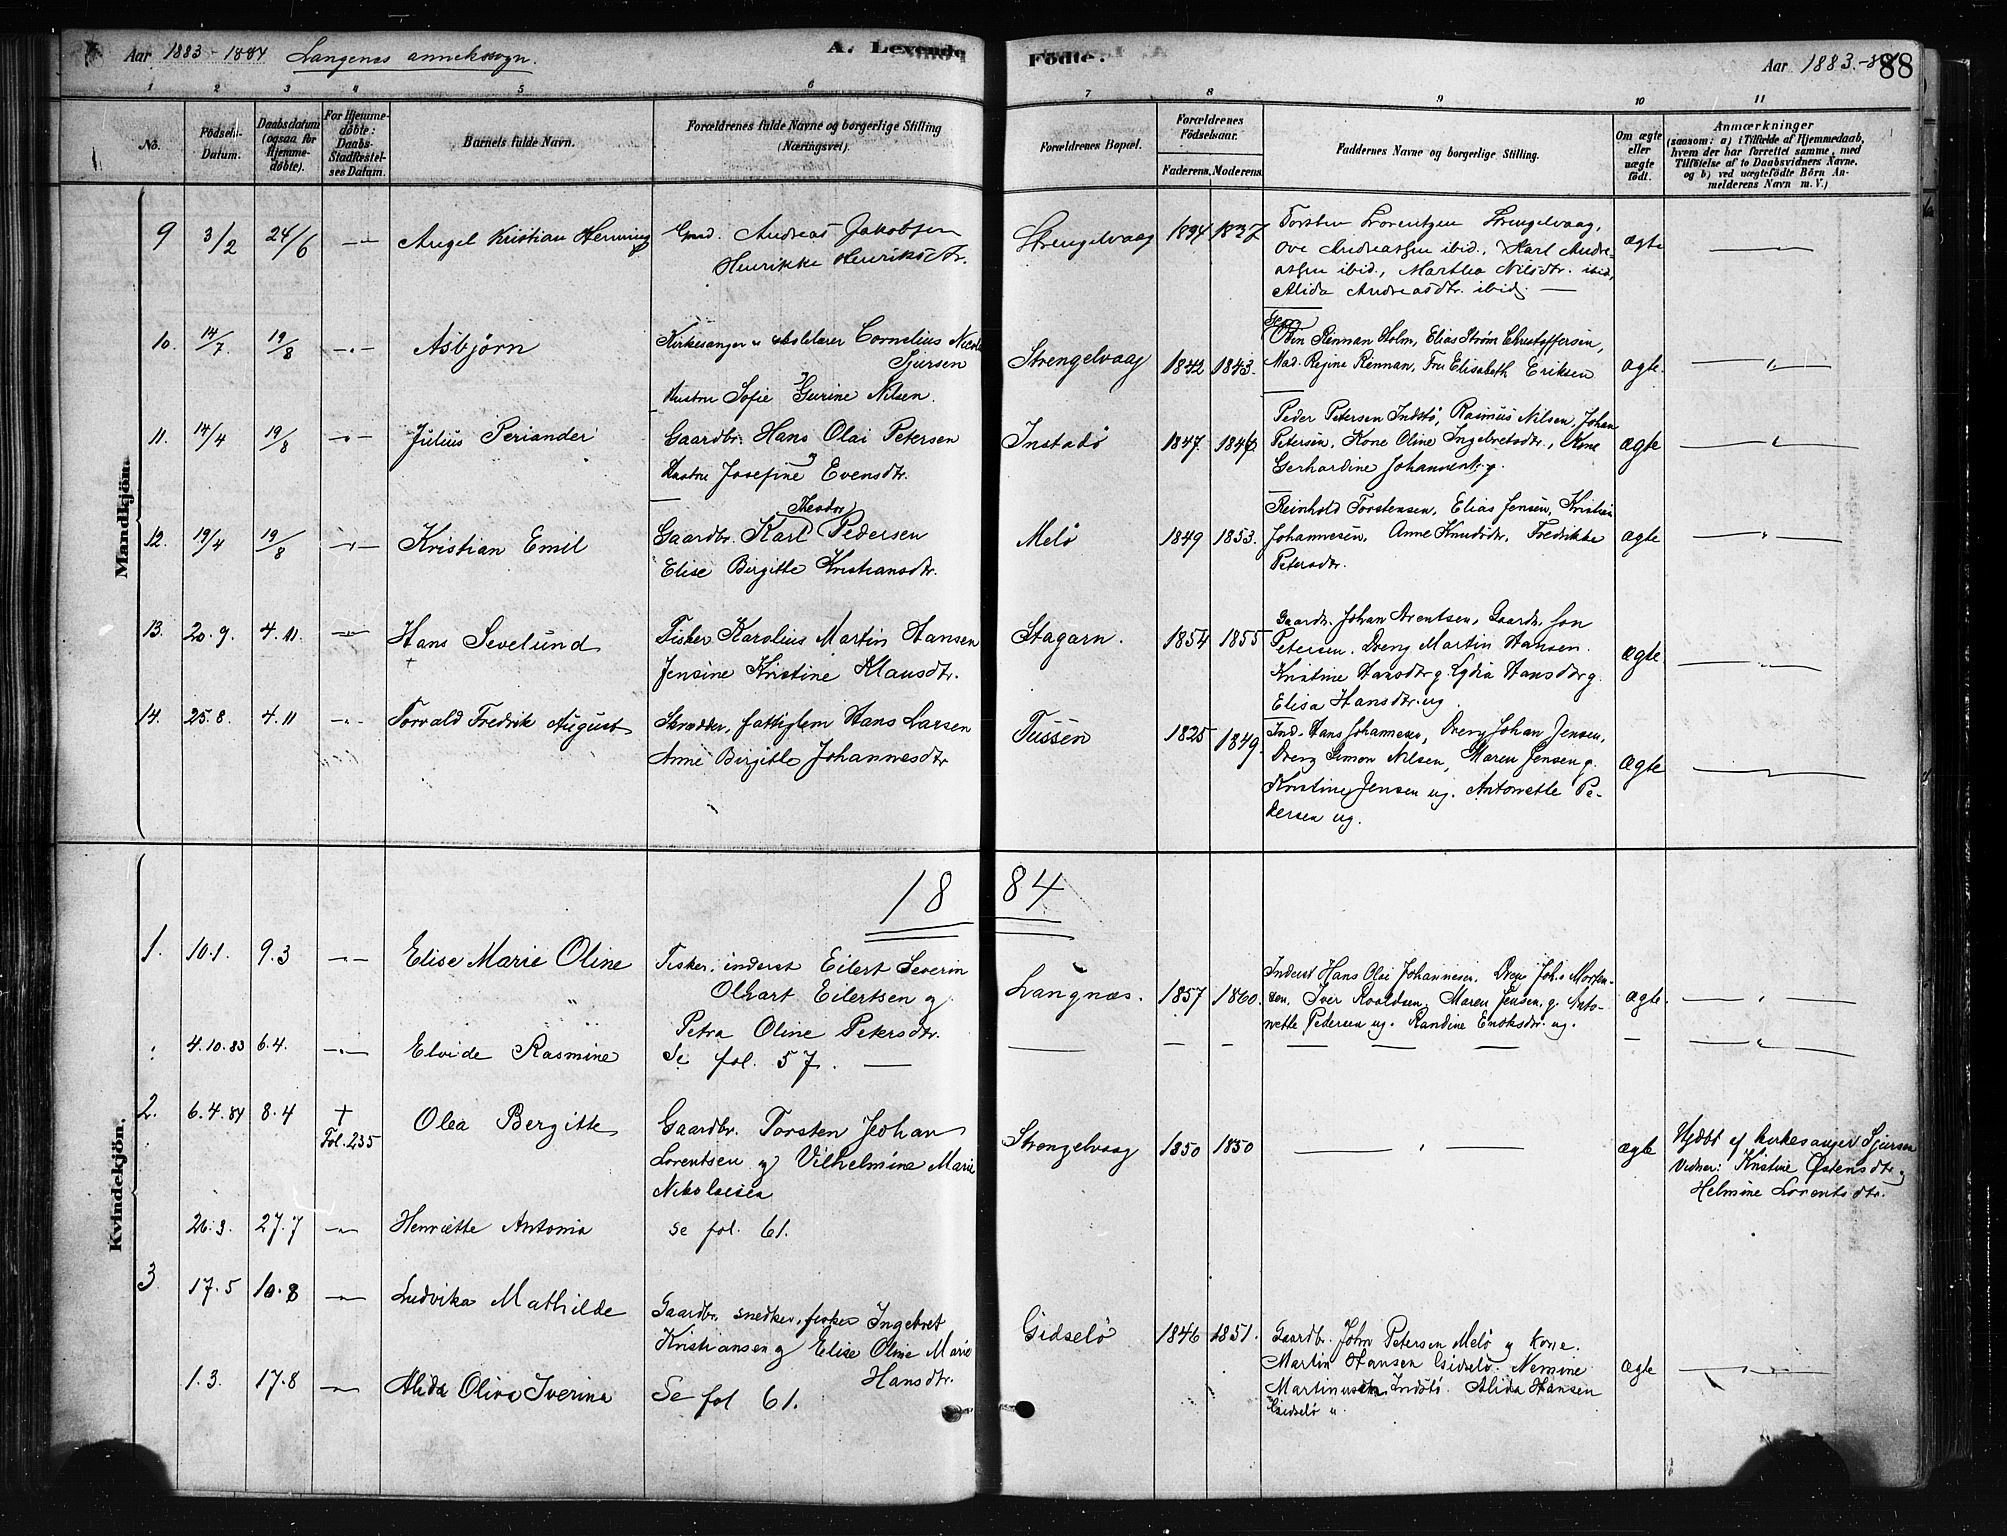 Aar 1883-1884 Langenes annekssogn. A. Levende Födte. Aar 1883.-84 88
1 2 3 4 5 6 7 8 9 10 11
No. Födsels-Datum. Daabsdatum (ogsaa for Hjemmedöbte). For Hjemmedöbte: Daabs-Stadfæstelses Datum. Barnets fulde Navn. Forældrenes fulde Navne og borgerlige Stilling (Næringsvei). Forældrenes Bopæl. Forældrenes Födselsaar. Faderens. Moderens. Faddernes Navne og borgerlige Stilling. Om ægte eller uægte födt. Anmærkninger (saasom: a) i Tilfælde af Hjemmedaab, hvem der har forrettet samme, med Tilföielse af to Daabsvidners Navne. og b) ved uægtefödte Börn Anmelderens Navn m. V.)
Mandkjön.
9 3/2 24/6 Angel Kristian Henning Gmd. Andreas Jakobsen Strengelvaag 1834 1837 Torsten Lorentzen Strengelvaag,
Henrikke Henriksdtr. Ove Andreassen ibid., Karl Andre- ægte
assen ibid., Marthea Nilsdtr. ibid,
Alida Andreasdtr. ibid
10. 14/7. 19/8 Asbjörn Kirkesanger & skolelærer Cornelius Nicolai Odin Rennan Holm, Elias Strøm Christoffersen,
Sjursen Strengelvaag 1842 1843. Mad. Regine Rennan, Fru Elisabeth Eriksen ægte.
Hustru Sofie Gurine Nilsen.
11. 14/4 19/8 Julius Periander Gaardbr. Hans Olai Petersen Instadö 1847. 1846. Peder Petersen Indstö, Rasmus Nilsen, Johan
Petersen, Kone Oline Ingebretsdtr., Kone ægte
Hustru Josefine Evensdtr. Gerhardine Johannesen g.
12. 19/4 19/8 Kristian Emil Gaardbr. Karl Theodor Pedersen Melö 1849 1853. Reinhold Torstensen, Elias Jensen, Kristian
Johannesen, Anne Knudsdtr., Fredrikke ægte
Elise Birgitte Kristiansdtr. Petersdtr.
13. 20.9. 4.11. Hans Sevelund Fisker Karolius Martin Hansen Stagarn. 1854 1855 Gaardbr. Johan Arentsen, Gaardbr. Jon
Petersen. Dreng Martin Hansen. ægte
Jensine Kristine Klausdtr. Kristine Hansdtr g. Lydia Hansdtr g.
Elisa Hansdtr. ug
14. 25.8. 4.11 Torvald Fredrik August Skrædder, fattiglem Hans Larsen Tussen 1825 1849. Ind. Hans Johannesen, Dreng Johan Jensen,
Anne Birgitte Johannesdtr Dreng Simon Nilsen, Maren Jensen g. ægte
Kristine Jensen ug. Antonette Pe-
dersen ug.
1884
Kvindekjön.
1. 10.1. 9.3 Elise Marie Oline Fisker, inderst Eilert Severin Langnæs. 1857 1860. Inderst Hans Olai Johannesen. Dreng Joh. Morten-
Olhart Eilertsen g sen, Iver Roaldsen, Maren Jensen, g. Anto- ægte.
Petra Oline Petersdtr. nette Pedersen ug. Randine Enoksdtr. ug.
4.10.83 6.4. Elvide Rasmine Se fol. 57.
2. 6.4.84 8.4 † Fol. 235 Olea Bergitte Gaardbr. Torsten Johan Strengelvaag 1850 1850 ægte Hjdbt af kirkesanger Sjursen
Lorentsen g Vilhelmine Marie Vidner: Kristine Østensdtr g
Nikolaisen Helmine Lorentsdtr.
26.3. 27.7 Henriette Antonia se fol. 61.
3 17.5 10.8 Ludvika Mathilde Gaardbr, snedker, fisker Ingebret Gidselö 1846 1851. Gaardbr. John Petersen Melö g kone.
Kristiansen g Elise Oline Marie Martin Hansen Gidselö. Nemine ægte
Hansdtr. Martinussen Indstö. Alida Hansen
Gidselö u.
1.3. 17.8 Alida Oliva Iverina Se fol 61.